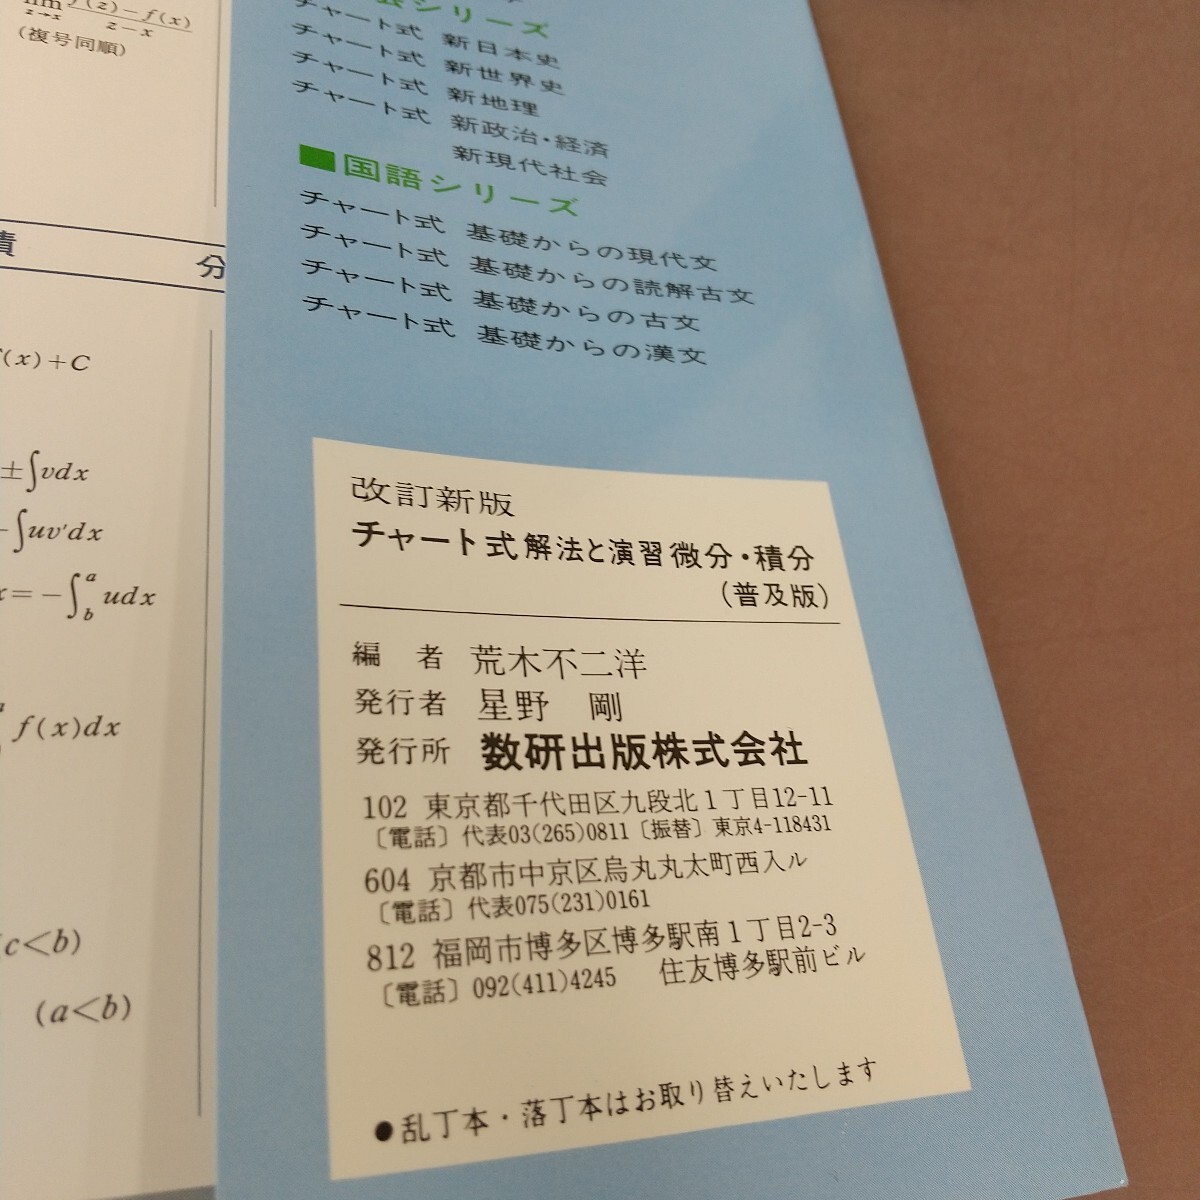 lim z→x f(z)−f(x) / z−x
(複号同順)
分
(x)+C
±∫vdx
∫uv'dx
=−∫_b^a udx
f(x)dx
c<b)
(a<b)
シリーズ
チャート式 新日本史
チャート式 新世界史
チャート式 新地理
チャート式 新政治・経済
新現代社会
■国語シリーズ
チャート式 基礎からの現代文
チャート式 基礎からの読解古文
チャート式 基礎からの古文
チャート式 基礎からの漢文
改訂新版
チャート式解法と演習微分・積分
(普及版)
編 者 荒木不二洋
発行者 星野 剛
発行所 数研出版株式会社
102 東京都千代田区九段北1丁目12-11
〔電話〕代表03(265)0811〔振替〕東京4-118431
604 京都市中京区烏丸丸太町西入ル
〔電話〕代表075(231)0161
812 福岡市博多区博多駅南1丁目2-3
〔電話〕092(411)4245 住友博多駅前ビル
●乱丁本・落丁本はお取り替えいたします